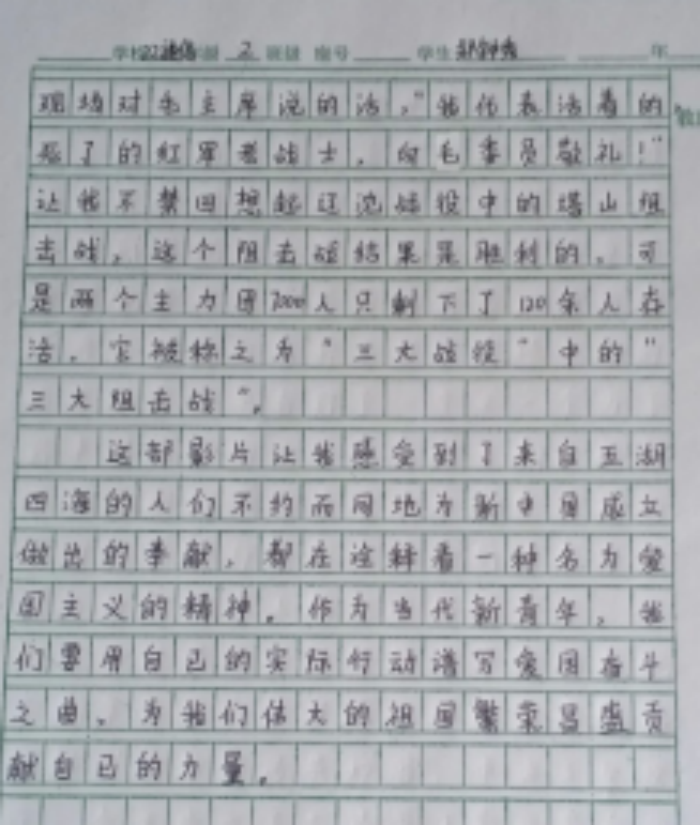 学校22速级 2 班级 座号 学生 年
现场对毛主席说的话，“我代表活着的
死了的红军老战士，向毛委员敬礼！”
让我不禁回想起辽沈战役中的塔山阻
击战，这个阻击战结果是胜利的，可
是两个主力团7000人只剩下了120余人存
活，它被称之为“三大战役”中的“
三大阻击战”。
这部影片让我感受到了来自五湖
四海的人们不约而同地为新中国成立
做出的奉献，都在诠释着一种名为爱
国主义的精神。作为当代新青年，我
们要用自己的实际行动谱写爱国奋斗
之曲。为我们伟大的祖国繁荣昌盛贡
献自己的力量。